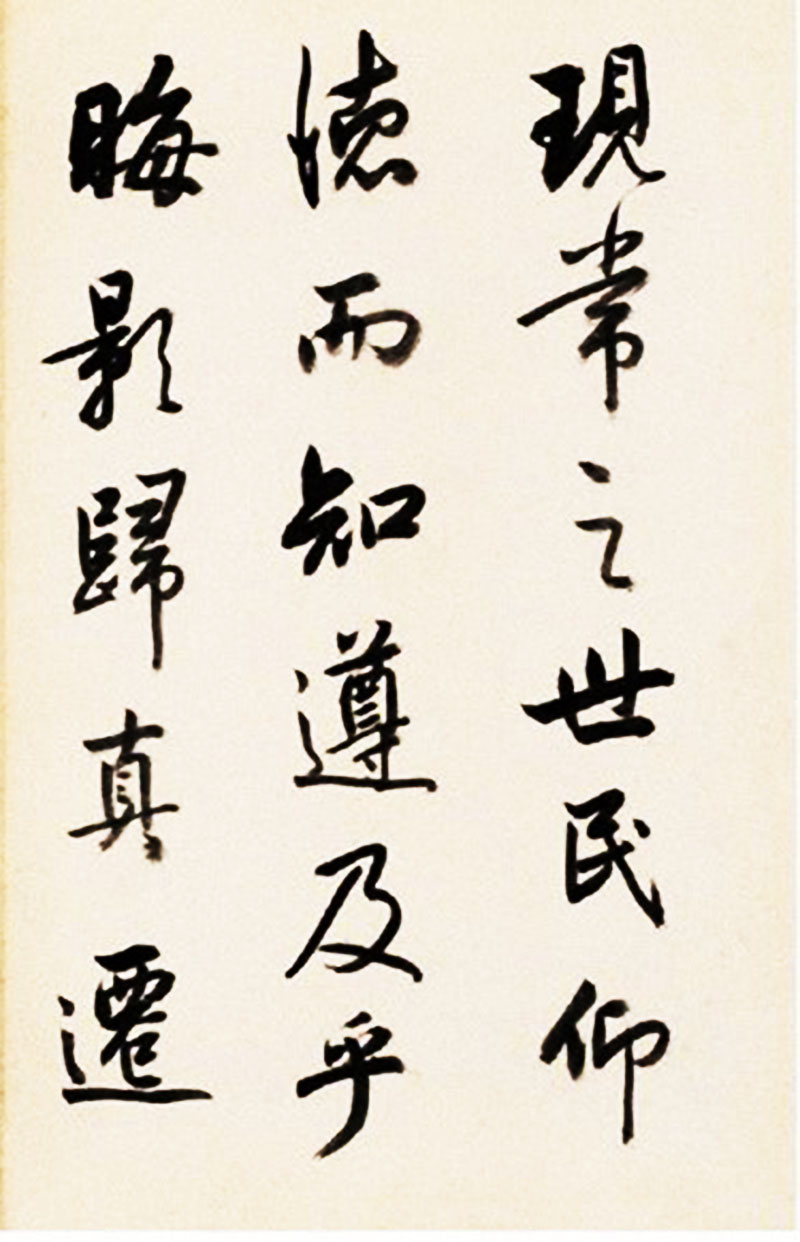 現常之世民仰
德而知遵及乎
晦影歸真遷